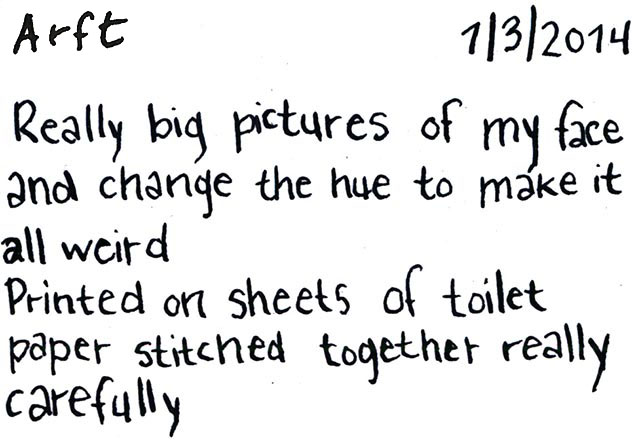 Arft 1/3/2014
Really big pictures of my face
and change the hue to make it
all weird
Printed on sheets of toilet
paper stitched together really
carefully